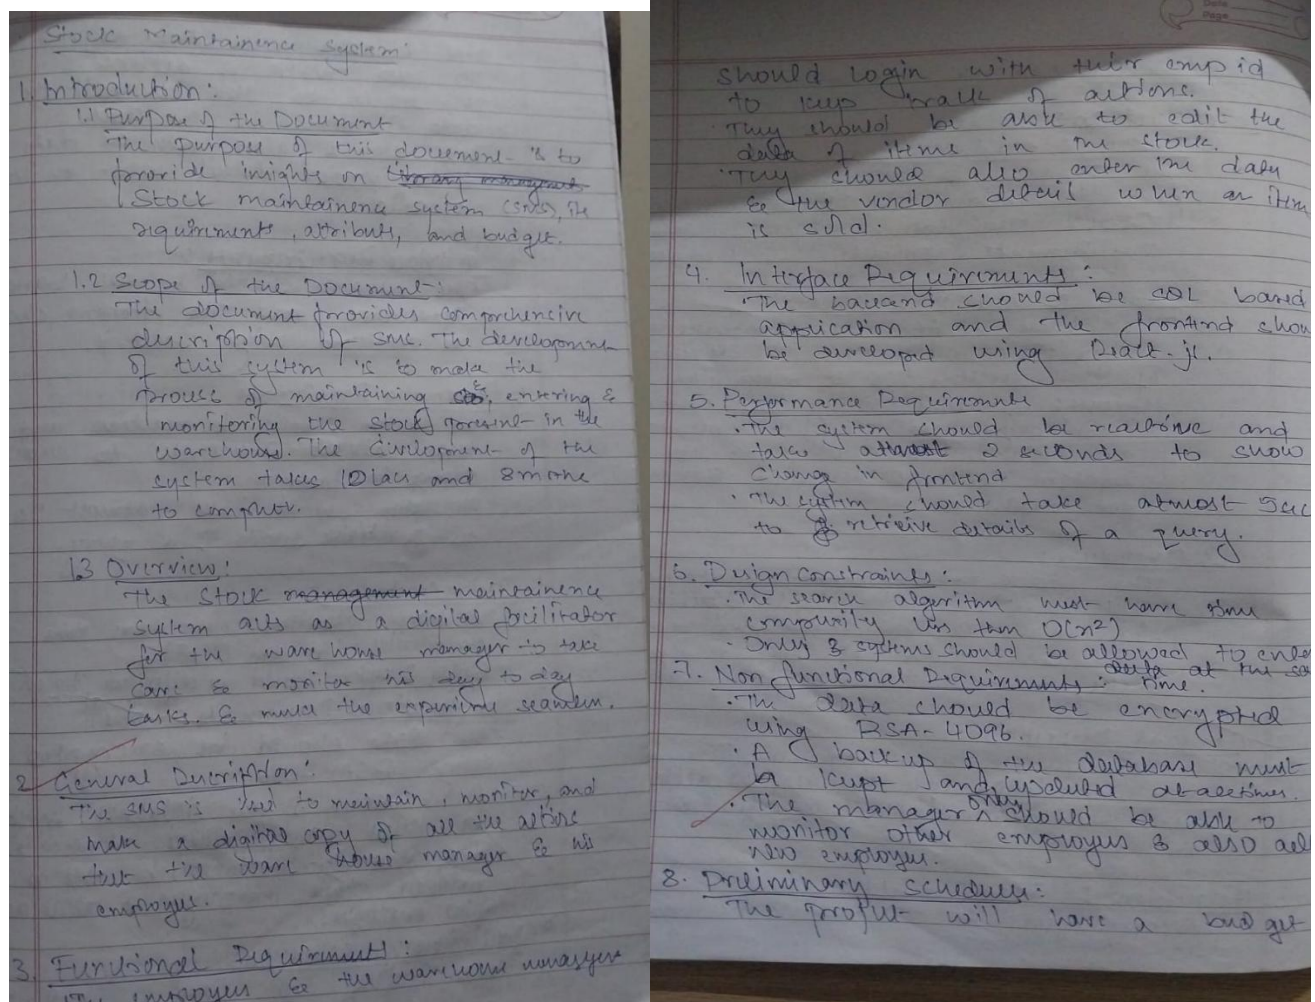 Stock Maintainence System:
1. Introduction:
1.1 Purpose of the Document
The purpose of this document is to
provide insights on
Stock maintainence system (SMS), its
requirements, attributes, and budget.
1.2 Scope of the Document:
The document provides comprehensive
description of SMS. The development
of this system is to make the
process of maintaining, entering &
monitoring the stock present in the
warehouse. The development of the
system takes 10 lacs and 8 months
to complete.
1.3 Overview:
The stock management maintainence
system acts as a digital facilitator
for the ware house manager to take
care & monitor his day to day
tasks. & make the experience seamless.
2. General Description:
The SMS is used to maintain, monitor, and
make a digital copy of all the actions
that the ware house manager & his
employees.
3. Functional Requirements:
The employees & the warehouse managers
Date
Page
should login with their emp id
to keep track of actions.
· They should be able to edit the
data of items in the stock.
· They should also enter the data
& the vendor details when an item
is sold.
4. Interface Requirements:
· The backend should be SQL based
application and the frontend shou
be developed using React.js.
5. Performance Requirements
· The system should be realtime and
take atmost 2 seconds to show
change in frontend
· The system should take atmost 5sec
to retrieve details of a query.
6. Design constraints:
· The search algorithm must have time
complexity less than O(n²)
· Only 3 systems should be allowed to ente
data at the sa
7. Non functional Requirements: time.
· The data should be encrypted
using RSA-4096.
· A backup of the database must
be kept and at all times.
· The manager only should be able to
monitor other employees & also ad
new employees.
8. Preliminary schedules:
The project will have a budget